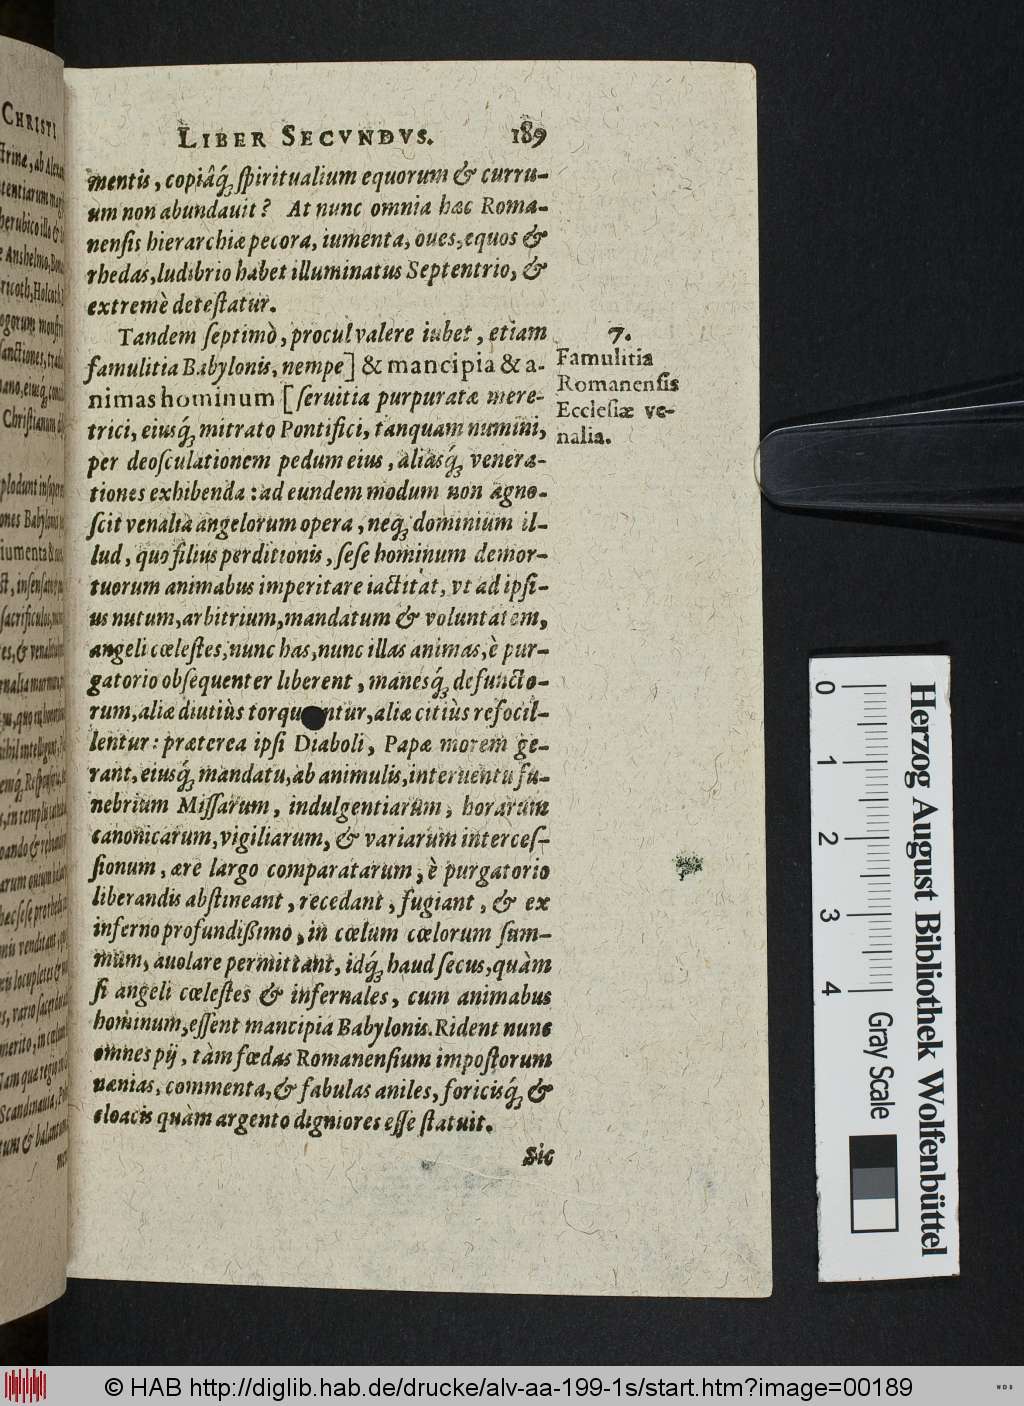 LIBER SECVNDVS. 189
mentis, copiâq́; ſpiritualium equorum & curru-
um non abundauit? At nunc omnia hæc Roma-
nenſis hierarchiæ pecora, iumenta, oues, equos &
rhedas, ludibrio habet illuminatus Septentrio, &
extremè deteſtatur.
Tandem ſeptimò, procul valere iubet, etiam
famulitia Babylonis, nempe] & mancipia & a-
nimas hominum [ſeruitia purpuratæ mere-
trici, eiusq́; mitrato Pontifici, tanquam numini,
per deoſculationem pedum eius, aliasq́; venera-
tiones exhibenda: ad eundem modum non agno-
ſcit venalia angelorum opera, neq́; dominium il-
lud, quo filius perditionis, ſeſe hominum demor-
tuorum animabus imperitare iactitat, vt ad ipſi-
us nutum, arbitrium, mandatum & voluntatem,
angeli cœleſtes, nunc has, nunc illas animas, è pur-
gatorio obſequenter liberent, manesq́; defuncto-
rum, aliæ diutiùs torqu ntur, aliæ citiùs refocil-
lentur: præterea ipſi Diaboli, Papæ morem ge-
rant, eiusq́; mandatu, ab animulis, interuentu fu-
nebrium Miſſarum, indulgentiarum, horarum
canonicarum, vigiliarum, & variarum interceſ-
ſionum, ære largo comparatarum, è purgatorio
liberandis abſtineant, recedant, fugiant, & ex
inferno profundißimo, in cœlum cœlorum ſum-
mum, auolare permittant, idq́; haud ſecus, quàm
ſi angeli cœleſtes & infernales, cum animabus
hominum, eſſent mancipia Babylonis. Rident nunc
omnes pij, tàm fœdas Romanenſium impoſtorum
nænias, commenta, & fabulas aniles, foricisq́; &
cloacis quàm argento digniores eſſe ſtatuit.
Sic
7.
Famulitia
Romanenſis
Eccleſiæ ve-
nalia.
CHRISTI
0 1 2 3 4
Gray Scale
Herzog August Bibliothek Wolfenbüttel
© HAB http://diglib.hab.de/drucke/alv-aa-199-1s/start.htm?image=00189